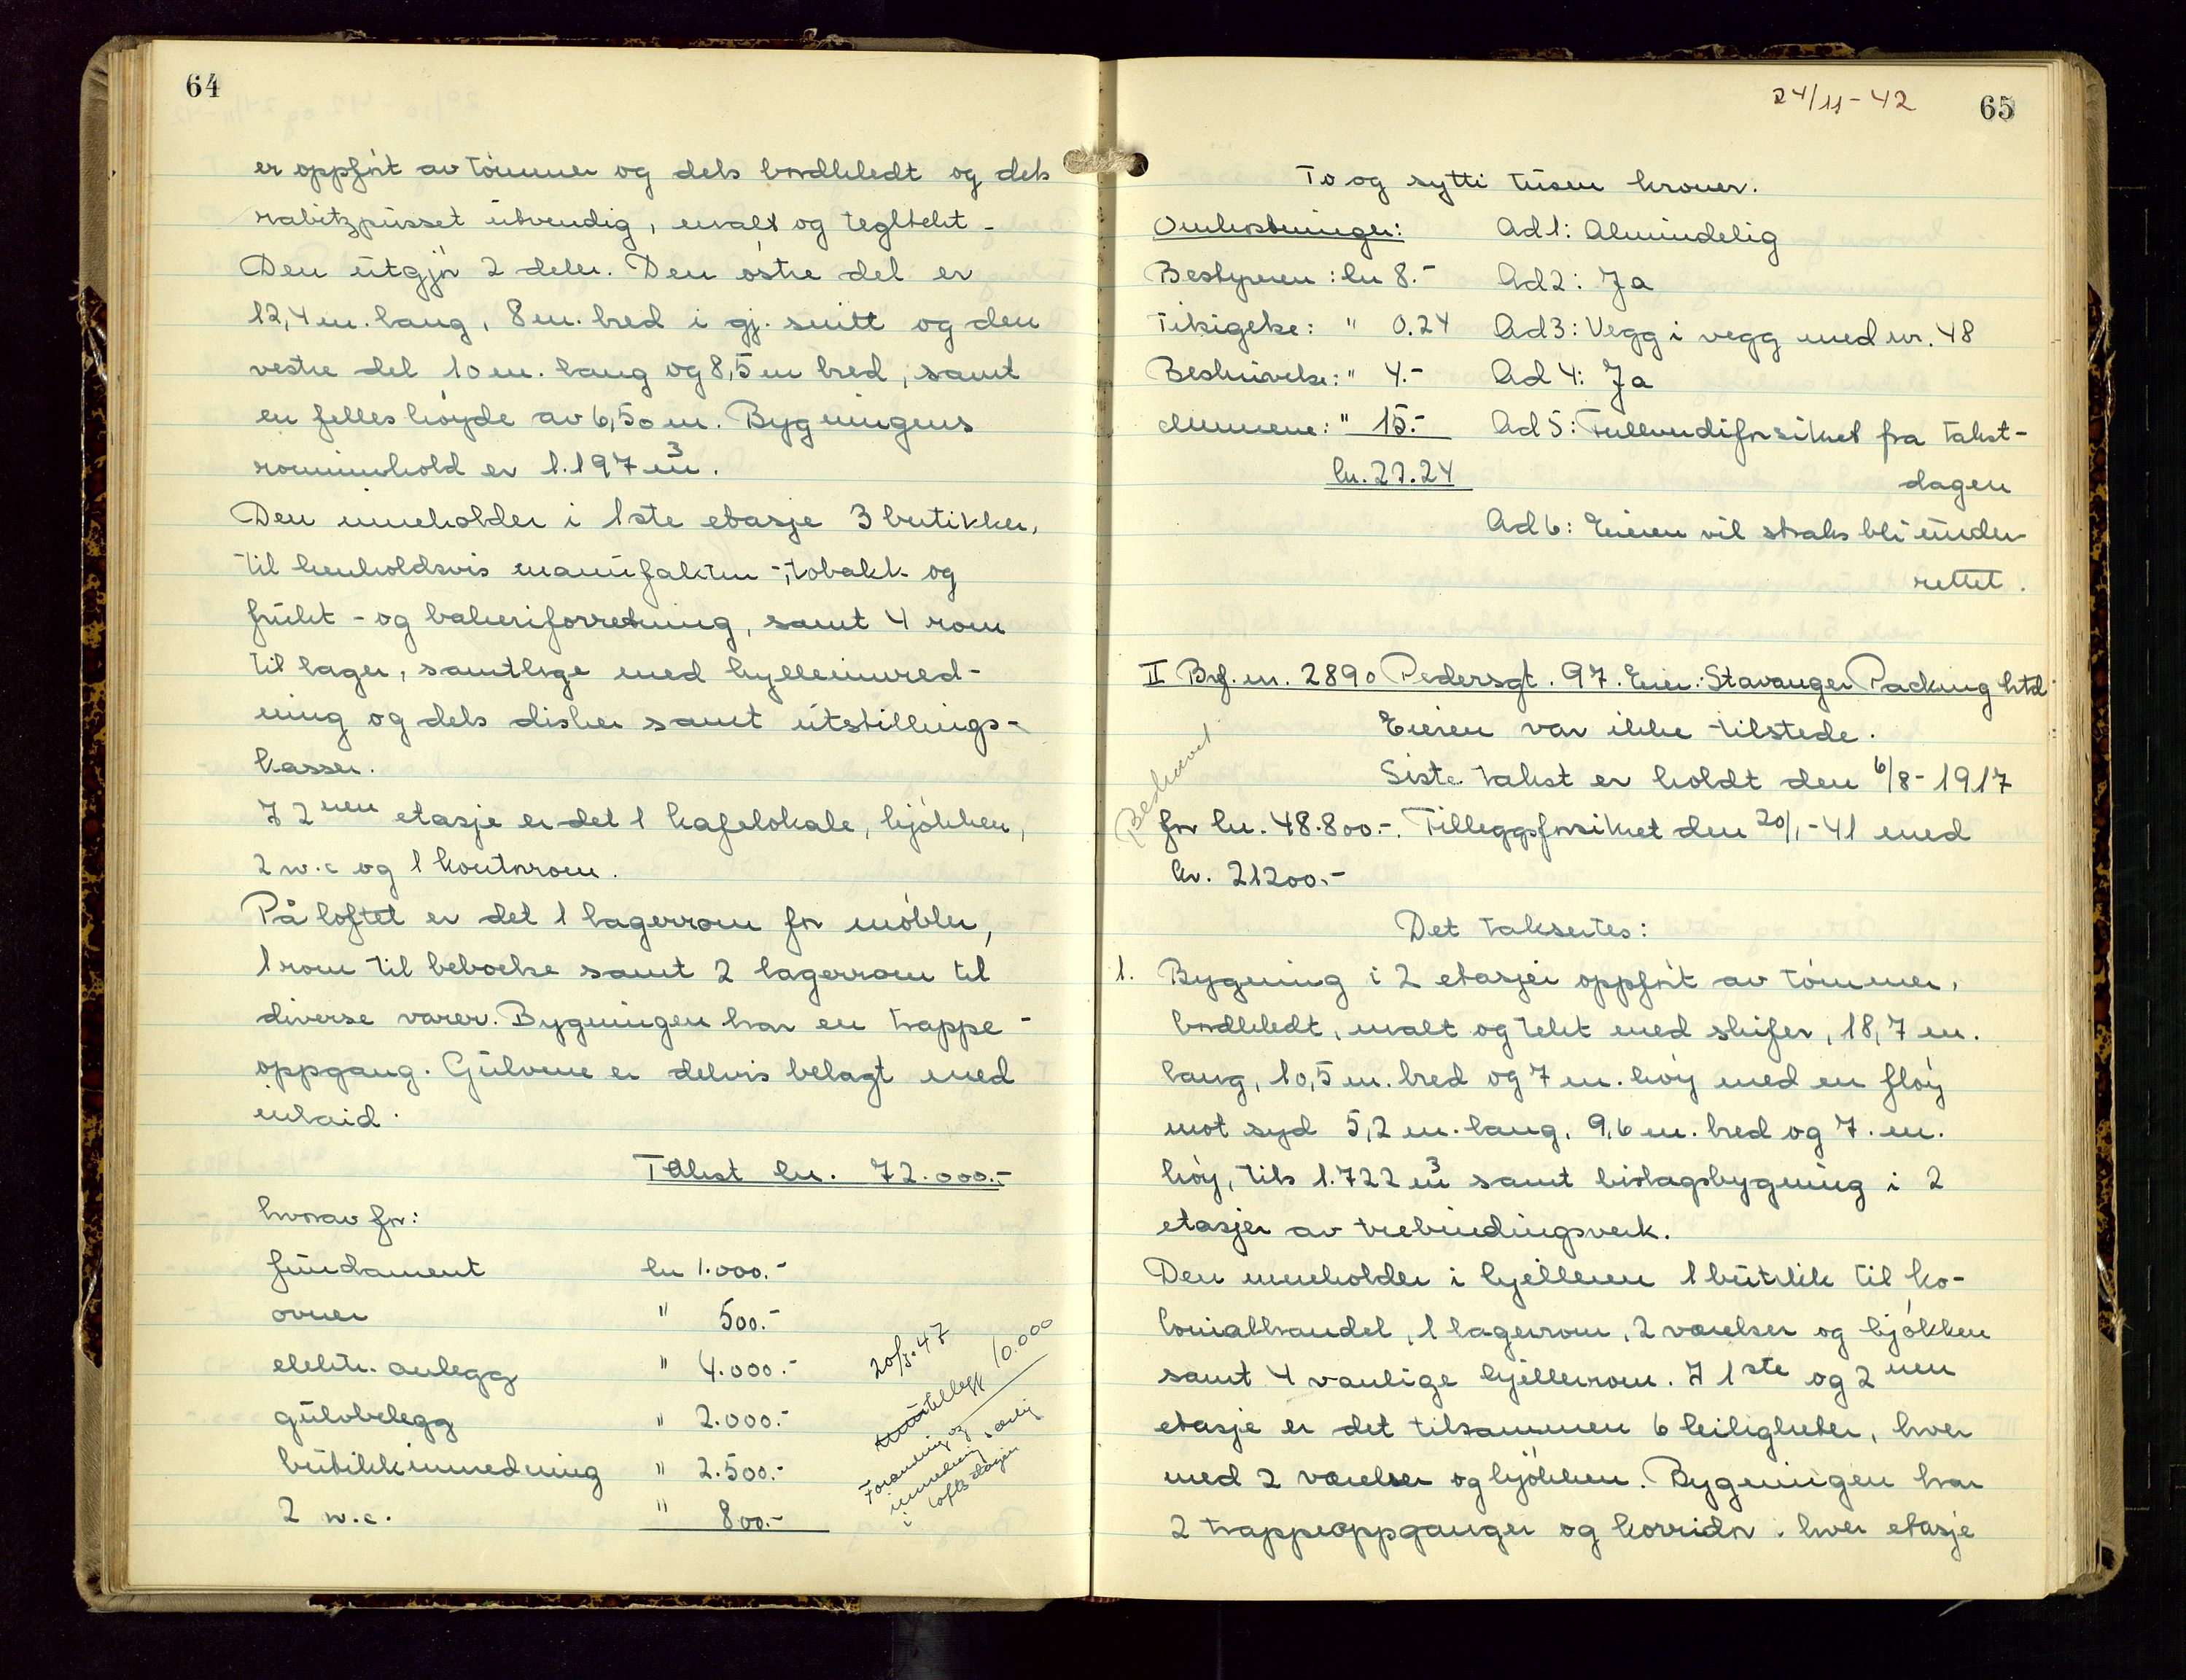 64
er oppført av tømmer og dels bordkledt og dels
rabitzpusset utvendig, malt og tegltekt.
Den utgjør 2 deler. Den østre del er
12,4 m. lang, 8 m. bred i gj. snitt og den
vestre del 10 m. lang og 8,5 m bred, samt
en felles høyde av 6,50 m. Bygningens
rominnhold er 1.197 m³.
Den inneholder i 1ste etasje 3 butikker,
til henholdsvis manufaktur-, tobakk- og
frukt- og bakeriforretning, samt 4 rom
til lager, samtlige med hylleinnred-
ning og dels disker samt utstillings-
kasser.
I 2nen etasje er det 1 kafelokale, kjøkken,
2 w.c og 1 kontorrom.
På loftet er det 1 lagerrom for møbler,
1 rom til beboelse samt 2 lagerrom til
diverse varer. Bygningen har en trappe-
oppgang. Gulvene er delvis belagt med
inlaid.
Takst kr. 72.000.-
hvorav for:
fundament kr 1.000.-
ovner " 500.-
elektr. anlegg " 4.000.-
gulvbelegg " 2.000.-
butikkinnredning " 2.500.-
2 w.c. " 800.-
20/3-47
10.000
Forandring og
innredning særlig
i loftsetasjen
24/11-42
65
To og sytti tusen kroner.
Omkostninger: Ad 1: Almindelig
Bestyreren: kr 8.- Ad 2: Ja
Tilsigelse: " 0.24 Ad 3: Vegg i vegg med nr. 48
Beskrivelse: " 4.- Ad 4: Ja
Mennene: " 15.- Ad 5: Fullverdiforsikret fra takst-
kr. 27.24 dagen
Ad 6: Eieren vil straks bli under-
rettet.
II Brf. nr. 2890 Pedersgt. 97. Eier: Stavanger Packing Ltd
Eieren var ikke tilstede.
Siste takst er holdt den 6/8-1917
for kr. 48.800.-. Tilleggsforsikret den 20/1-41 med
kr. 21200.-
Det takseres:
1. Bygning i 2 etasjer oppført av tømmer,
bordkledt, malt og tekt med skifer, 18,7 m.
lang, 10,5 m. bred og 7 m. høy med en fløy
mot syd 5,2 m. lang, 9,6 m. bred og 7. m.
høy, tils 1.722 m³ samt bislagsbygning i 2
etasjer av trebindingsverk.
Den inneholder i kjelleren 1 butikk til ko-
lonialhandel, 1 lagerrom, 2 værelser og kjøkken
samt 4 vanlige kjellerrom. I 1ste og 2nen
etasje er det tilsammen 6 leiligheter, hver
med 2 værelser og kjøkken. Bygningen har
2 trappeoppganger og korridor i hver etasje